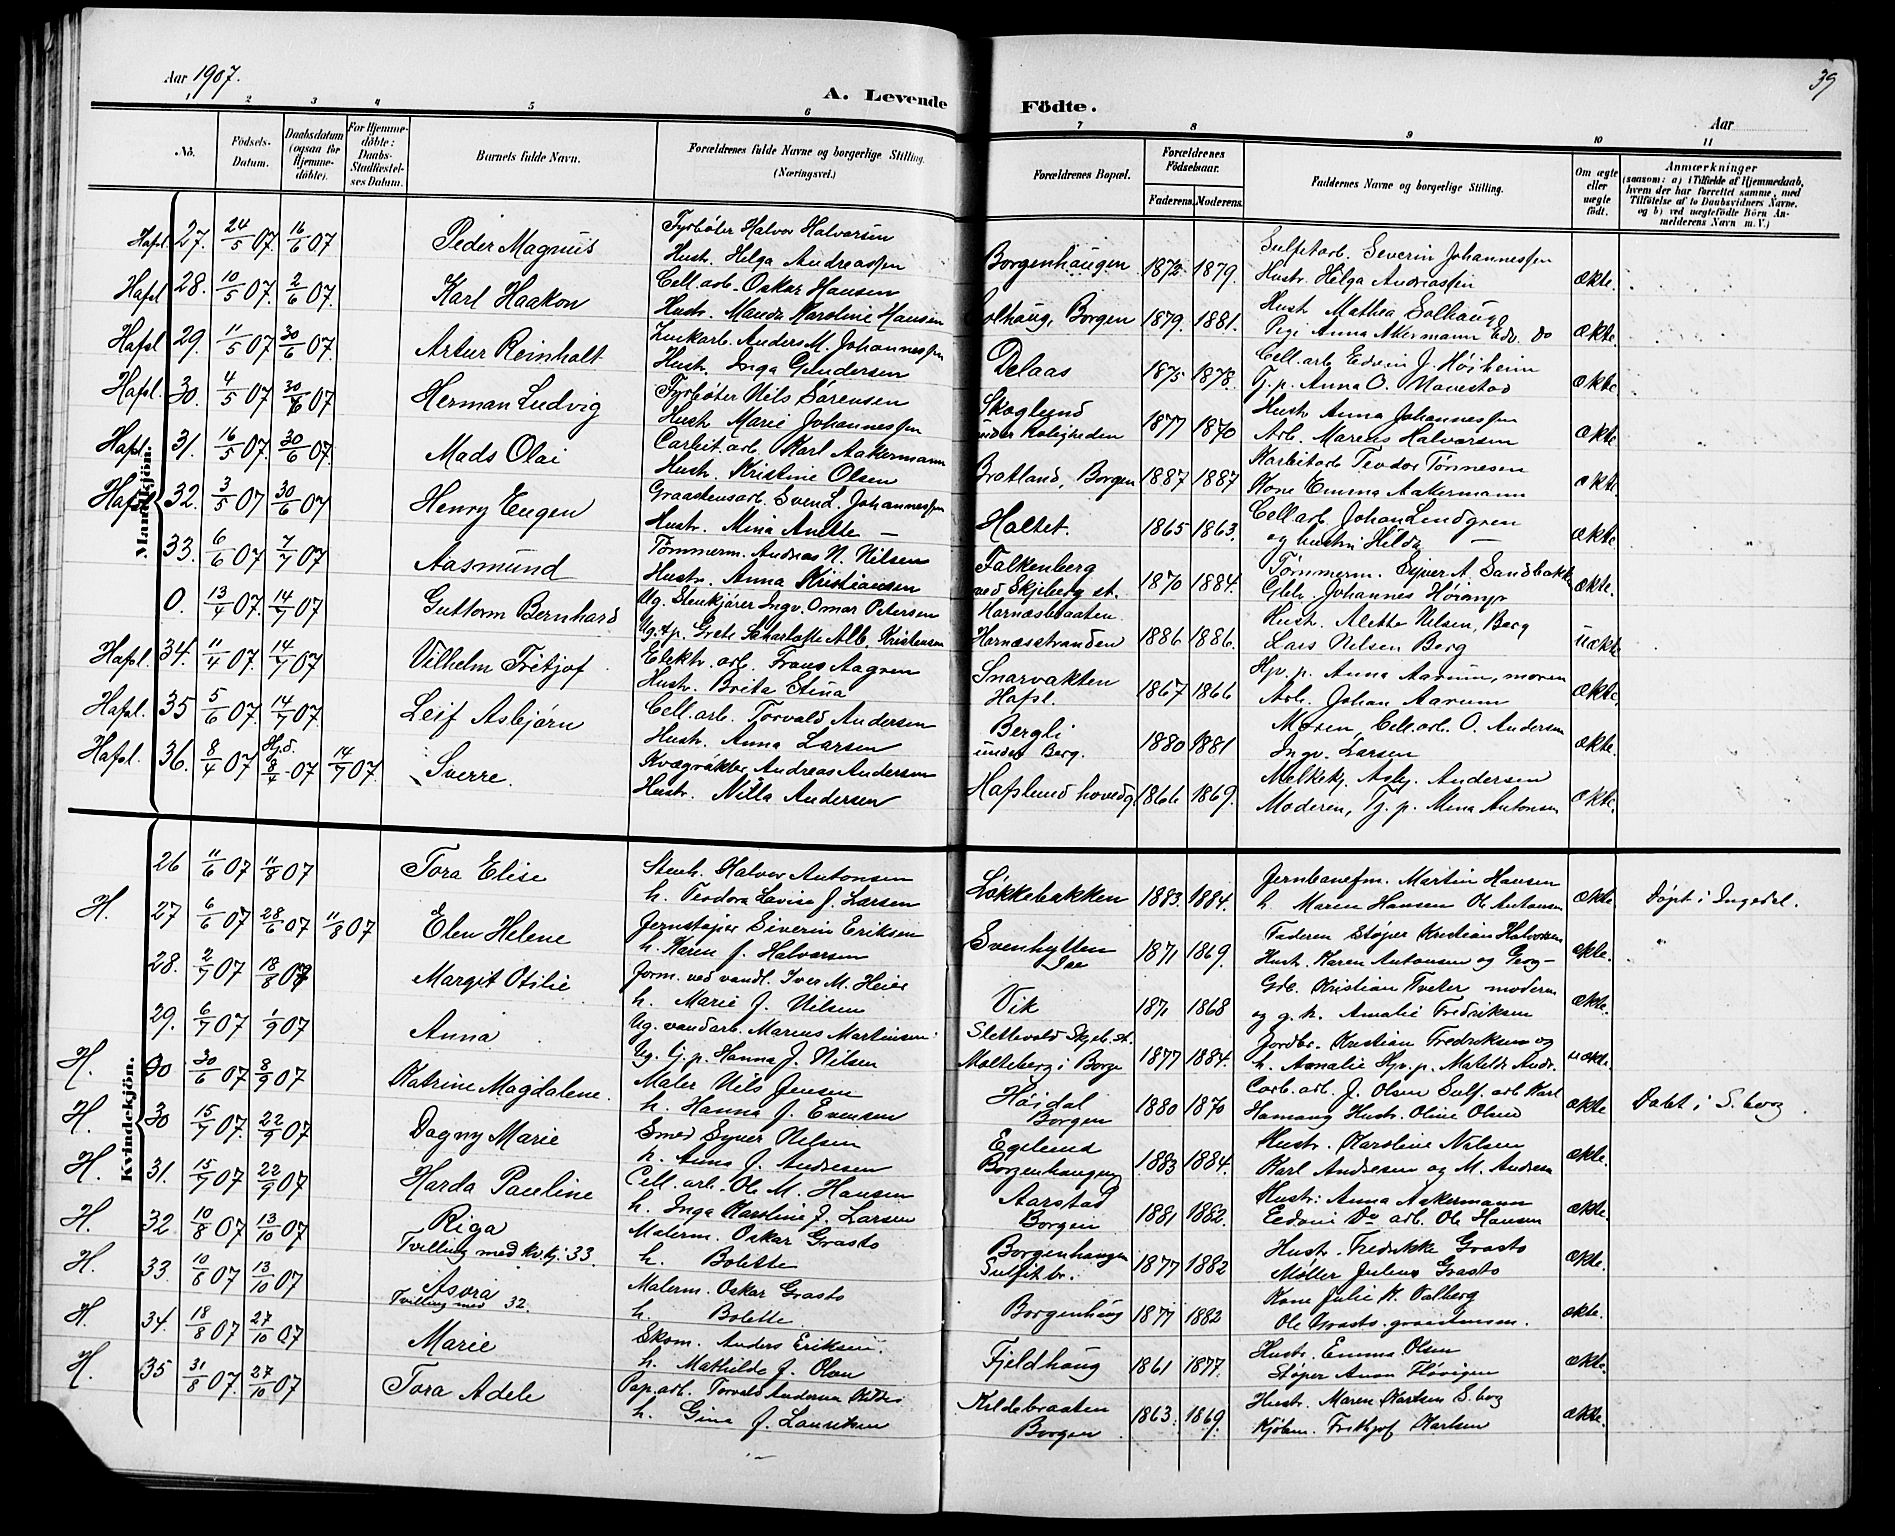 Aar 1907.
39
A. Levende Födte.
Aar
2 3 4 5 6 7 8 9 10 11
No.
Födsels-Datum.
Daabsdatum (ogsaa for Hjemmedöbte).
For Hjemmedöbte: Daabs-Stadfæstelses Datum.
Barnets fulde Navn.
Forældrenes fulde Navne og borgerlige Stilling. (Næringsvei.)
Forældrenes Bopæl.
Forældrenes Födselsaar.
Faderens. Moderens.
Faddernes Navne og borgerlige Stilling.
Om ægte eller uægte födt.
Anmærkninger
(saasom: a) i Tilfælde af Hjemmedaab, hvem der har forrettet samme, med Tilföielse af to Daabsvidners Navne, og b) ved uægtefödte Börn Anmelderens Navn m. V.)
Mandkjön.
Hafsl. 27. 24/5 07. 16/6 07 Peder Magnus Fyrbøter Halvor Halvorsen
Hustr. Helga Andreassen Borgenhaugen 1872. 1879. Sulfetarb. Severin Johannessen
Hustr. Helga Andreassen ækte.
Hafsl 28. 10/5 07. 2/6 07. Karl Haakon Cell. arb. Oskar Hansen
Hustr. Manda Karoline Hansen Solhaug, Borgen 1879. 1881. Hustr Mathea Solhaug
Pigi Anna Akermann Edv. Do ækte.
Hafsl 29. 11/5 07 30/6 07. Artur Reinhalt Anders M. Johannessen
Hustr. Inga Gundersen Delaas 1875 1878. Cell. arb Edvin J. Høiheim
Tj. p. Anna O. Navestad ækte
Hafsl. 30. 4/5 07 30/6 07 Herman Ludvig Fyrbøter Nils Sørensen
Hustr. Marie Johannessen Skoglund
under Roligheden 1877 1870 Hustr Anna Johannessen
Arb. Marius Halvorsen ækte
Hafsl. 31. 16/5 07. 30/6 07. Mads Olai Carbit. arb. Karl Aakermann
Hustr. Kristine Olsen Bratland, Borgen 1887 1887 Karbitarb Teodor Tønnesen
Kone Emma Aakermann ækte
Hafsl 32. 3/5 07 30/6 07 Henry Eugen Graastensarb. Svend. Johannessen
Hustr. Mina Anette — Haltet. 1865 1863. Cell arb. Johan Lindgren
og hustru Hilda — ækte
33. 6/6 07 7/7 07 Aasmund Tømmerm. Andreas N. Nilsen
Hustr. Anna Kristiansen Falkenberg
ved Skjeberg st. 1870 1884. Tømmerm. Syver A. Sandbakk
Johannes ækte.
0. 13/4 07. 14/7 07 Guttorm Bernhard Ug. Stenkjører Ingv. Omar Petersen
Ug. tp. Grete Scharlotte Alb. Kristensen Hornæsbraaten
Hornæsstranden 1886 1886. Hustr. Alette Nilsen, Berg
Lars Nilsen Berg uækte
Hafsl. 34. 11/4 07. 14/7 07 Vilhelm Fritjof Elektr. arb. Frans Aagren
Hustr. Brita Stina Snarvakten
Hafsl. 1867 1866 Anna Aarum, moren
Arb. Johan Aarum ækte.
Hafsl. 35 5/6 07. 14/7 07. Leif Asbjørn Cell. arb. Torvald Andersen
Hustr. Anna Larsen Bergli
under Berg. 1880 1881 Moren, Cell. arb. O. Andersen
Ingv. Larsen ækte.
Hafsl. 36. 8/4 07 Hj.d. 8/4 07 14/7 07. Sverre. Kvægrøkter Andreas Andersen
Hustr. Nilla Andersen Hafslund hovedg. 1866 1869. Melkekj. Asbj. Andersen
Moderen, Tj. p. Mina Antonsen ækte.
Kvindekjön.
26 11/6 07 11/8 07 Tora Elise Stenh. Halvor Antonsen
h. Teodora Lovise f. Larsen Løkkebakken 1883. 1884. Jernbanefm. Martin Hansen
h. Maren Hansen Ole Antonsen ækte. Døpt i Ingedal.
H. 27 6/6 07 28/6 07 11/8 07 Elen Helene Jernstøper Siverin Eriksen
h. Karen f. Halvorsen Svenhytten 1871 1869. Faderen Støper Kristian Halvorsen
Hust. Karen Antonsen og Georg — ækte. "
28. 2/7 07 18/8 07 Margit Otilie Form. ved vandl. Iver M. Heier
h. Marie f. Nilsen Vik 1871 1868 Gdb. Kristian Tveter moderen
og g. h. Amalie Fredriksen ækte.
29. 6/7 07 1/9 07 Anna Ug. vandarb. Marius Martinsen
Ug. tj. p. Hanna J. Nilsen Slettevold Skjeb. st.
Molteberg i Borge 1877 1884. Jordbr. Kristian Fredriksen og
h. Amalie Hp. p. Matelde Andr. uækte.
H. 00 30/6 07 8/9 07 Katrine Magdalene. Maler Nils Jensen
h. Hanna f. Evensen Høidal
Borgen 1880 1870 Carb. arb. J. Olsen Sulf. arb. Karl
Hamang Hustr. Oline Olsen ækte Døbt i S. borg.
H. 30 15/7 07. 22/9 07 Dagny Marie Smed Syver Nilsen
h. Anna f. Andresen Egelund
Borgenhaugen 1883 1884. Hustr. Karoline Nilsen
Karl Andresen og M. Andresen ækte.
H. 31. 15/7 07 22/9 07 Harda Pauline Cell. arb. Ole M. Hansen
h. Inga Karoline f. Larsen Aarstad
Borgen 1881 1882. Hustr: Anna Aakermann
Edvin Do arb. Ole Hansen ækte.
H. 32 10/8 07 13/10 07 Riga
Tvilling med Kv.kj. 33. Malerm. Oskar Grasto
h. Bolette Borgenhaugen
Sulfitbr. 1877 1882 Hustr. Fredrikke Grasto
Møller Julius Grasto ækte.
H. 33. 10/8 07 13/10 07 Asora
Tvilling med 32. Malerm. Oskar Grasto
h. Bolette. Borgenhaug 1877 1882 Kone Julie K. Valberg
Ole Grasto ækte.
H. 34. 18/8 07 27/10 07 Marie Skom. Anders Eriksen
h. Mathilde f. Olsen Fjeldhaug 1861 1877. Hustr. Emma Olsen
Støper Anon Høvigen ækte.
H. 35 31/8 07. 27/10 07 Tora Adele Pap. arb. Torvald Andersen
h. Gina f. Lauritsen Kildebraaten
Borgen 1863. 1869. Hustr. Maren Karlsen S. borg
Kjøbm. Frithjof Karlsen ækte.